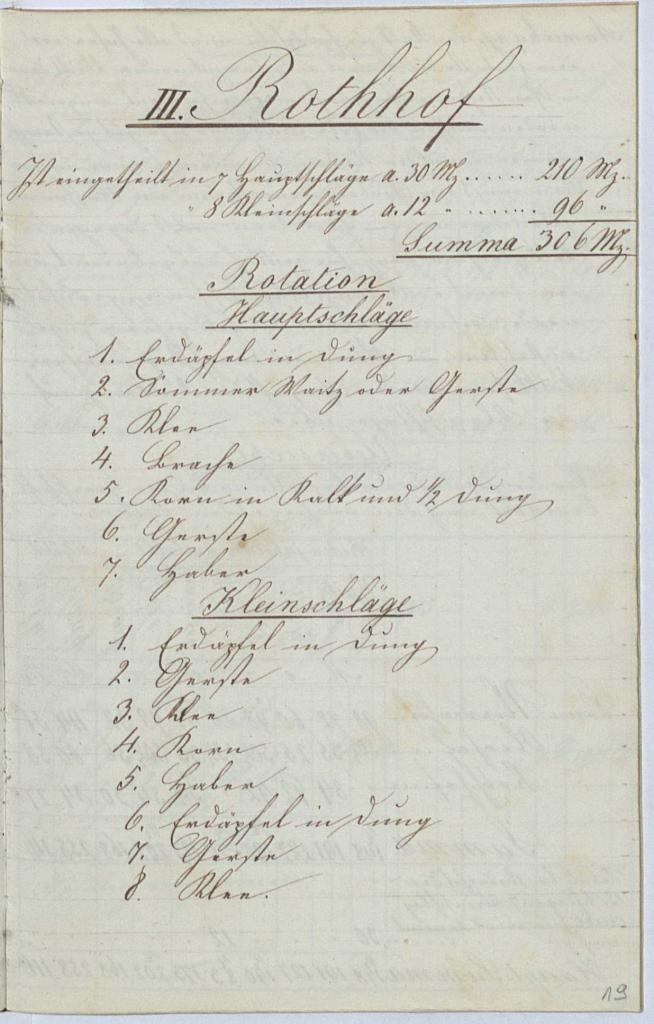 III. Rothhof
Ist eingetheilt in 7 Hauptschläge a. 30 Mz. ...... 210 Mz.
" 8 Kleinschläge a. 12 " ........ 96 "
Summa 306 Mz.
Rotation
Hauptschläge
1. Erdäpfel in Dung
2. Sommer Waitz oder Gerste
3. Klee
4. Brache
5. Korn in Kalk und 1/2 Dung
6. Gerste
7. Haber
Kleinschläge
1. Erdäpfel in Dung
2. Gerste
3. Klee
4. Korn
5. Haber
6. Erdäpfel in Dung
7. Gerste
8. Klee.
19